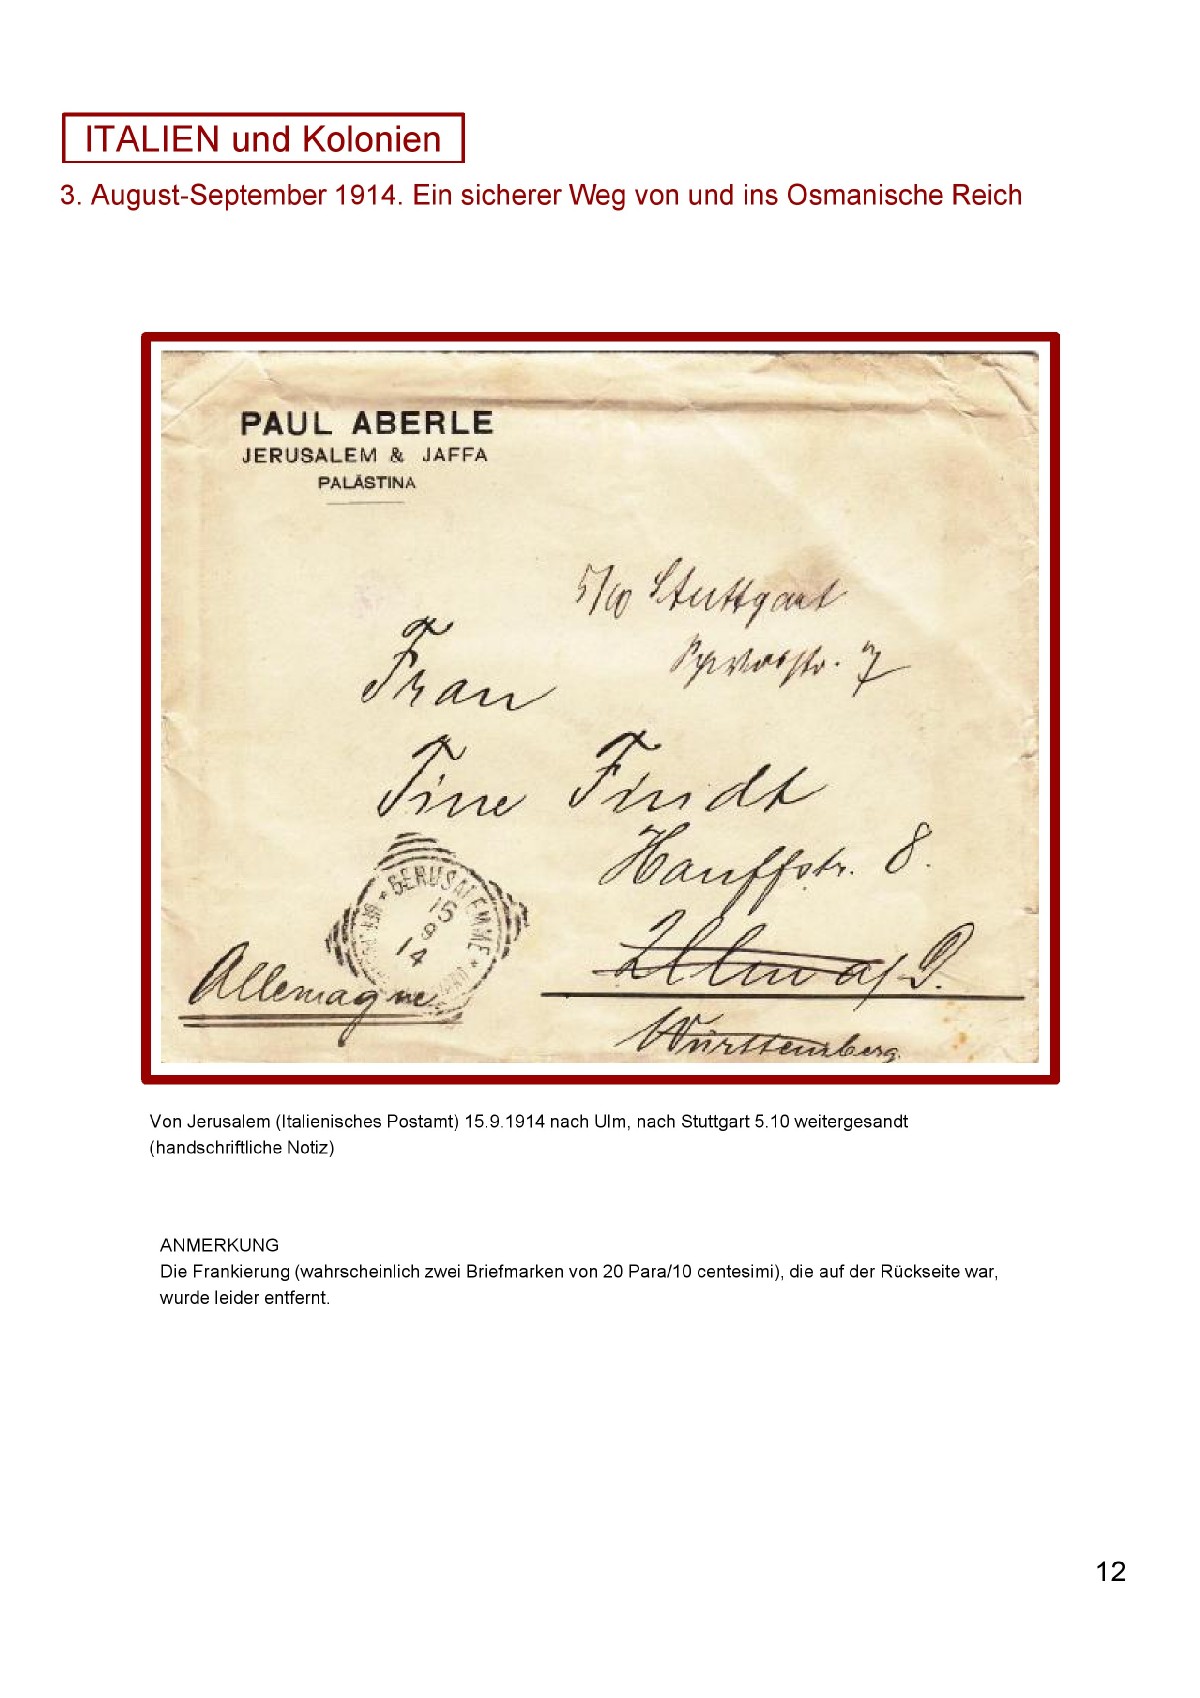 ITALIEN und Kolonien
3. August-September 1914. Ein sicherer Weg von und ins Osmanische Reich
PAUL ABERLE
JERUSALEM & JAFFA
PALÄSTINA
5/10 Stuttgart
7
Frau
Tine Findt
Hauffstr. 8.
GERUSALEMME
15
9
14
Allemagne
Ulm a/D.
Württemberg.
Von Jerusalem (Italienisches Postamt) 15.9.1914 nach Ulm, nach Stuttgart 5.10 weitergesandt
(handschriftliche Notiz)
ANMERKUNG
Die Frankierung (wahrscheinlich zwei Briefmarken von 20 Para/10 centesimi), die auf der Rückseite war,
wurde leider entfernt.
12